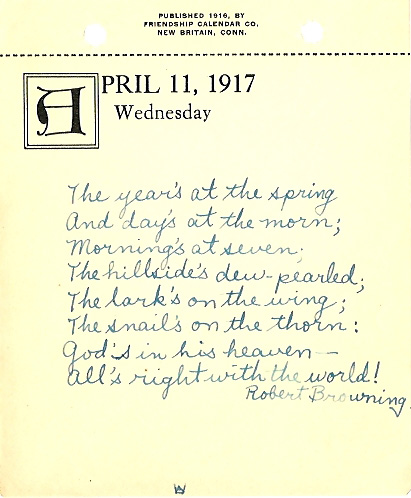 PUBLISHED 1916, BY
FRIENDSHIP CALENDAR CO.
NEW BRITAIN, CONN.
APRIL 11, 1917
Wednesday
The year's at the spring
And day's at the morn;
Morning's at seven;
The hillside's dew-pearled;
The lark's on the wing;
The snail's on the thorn:
God's in his heaven—
All's right with the world!
Robert Browning.